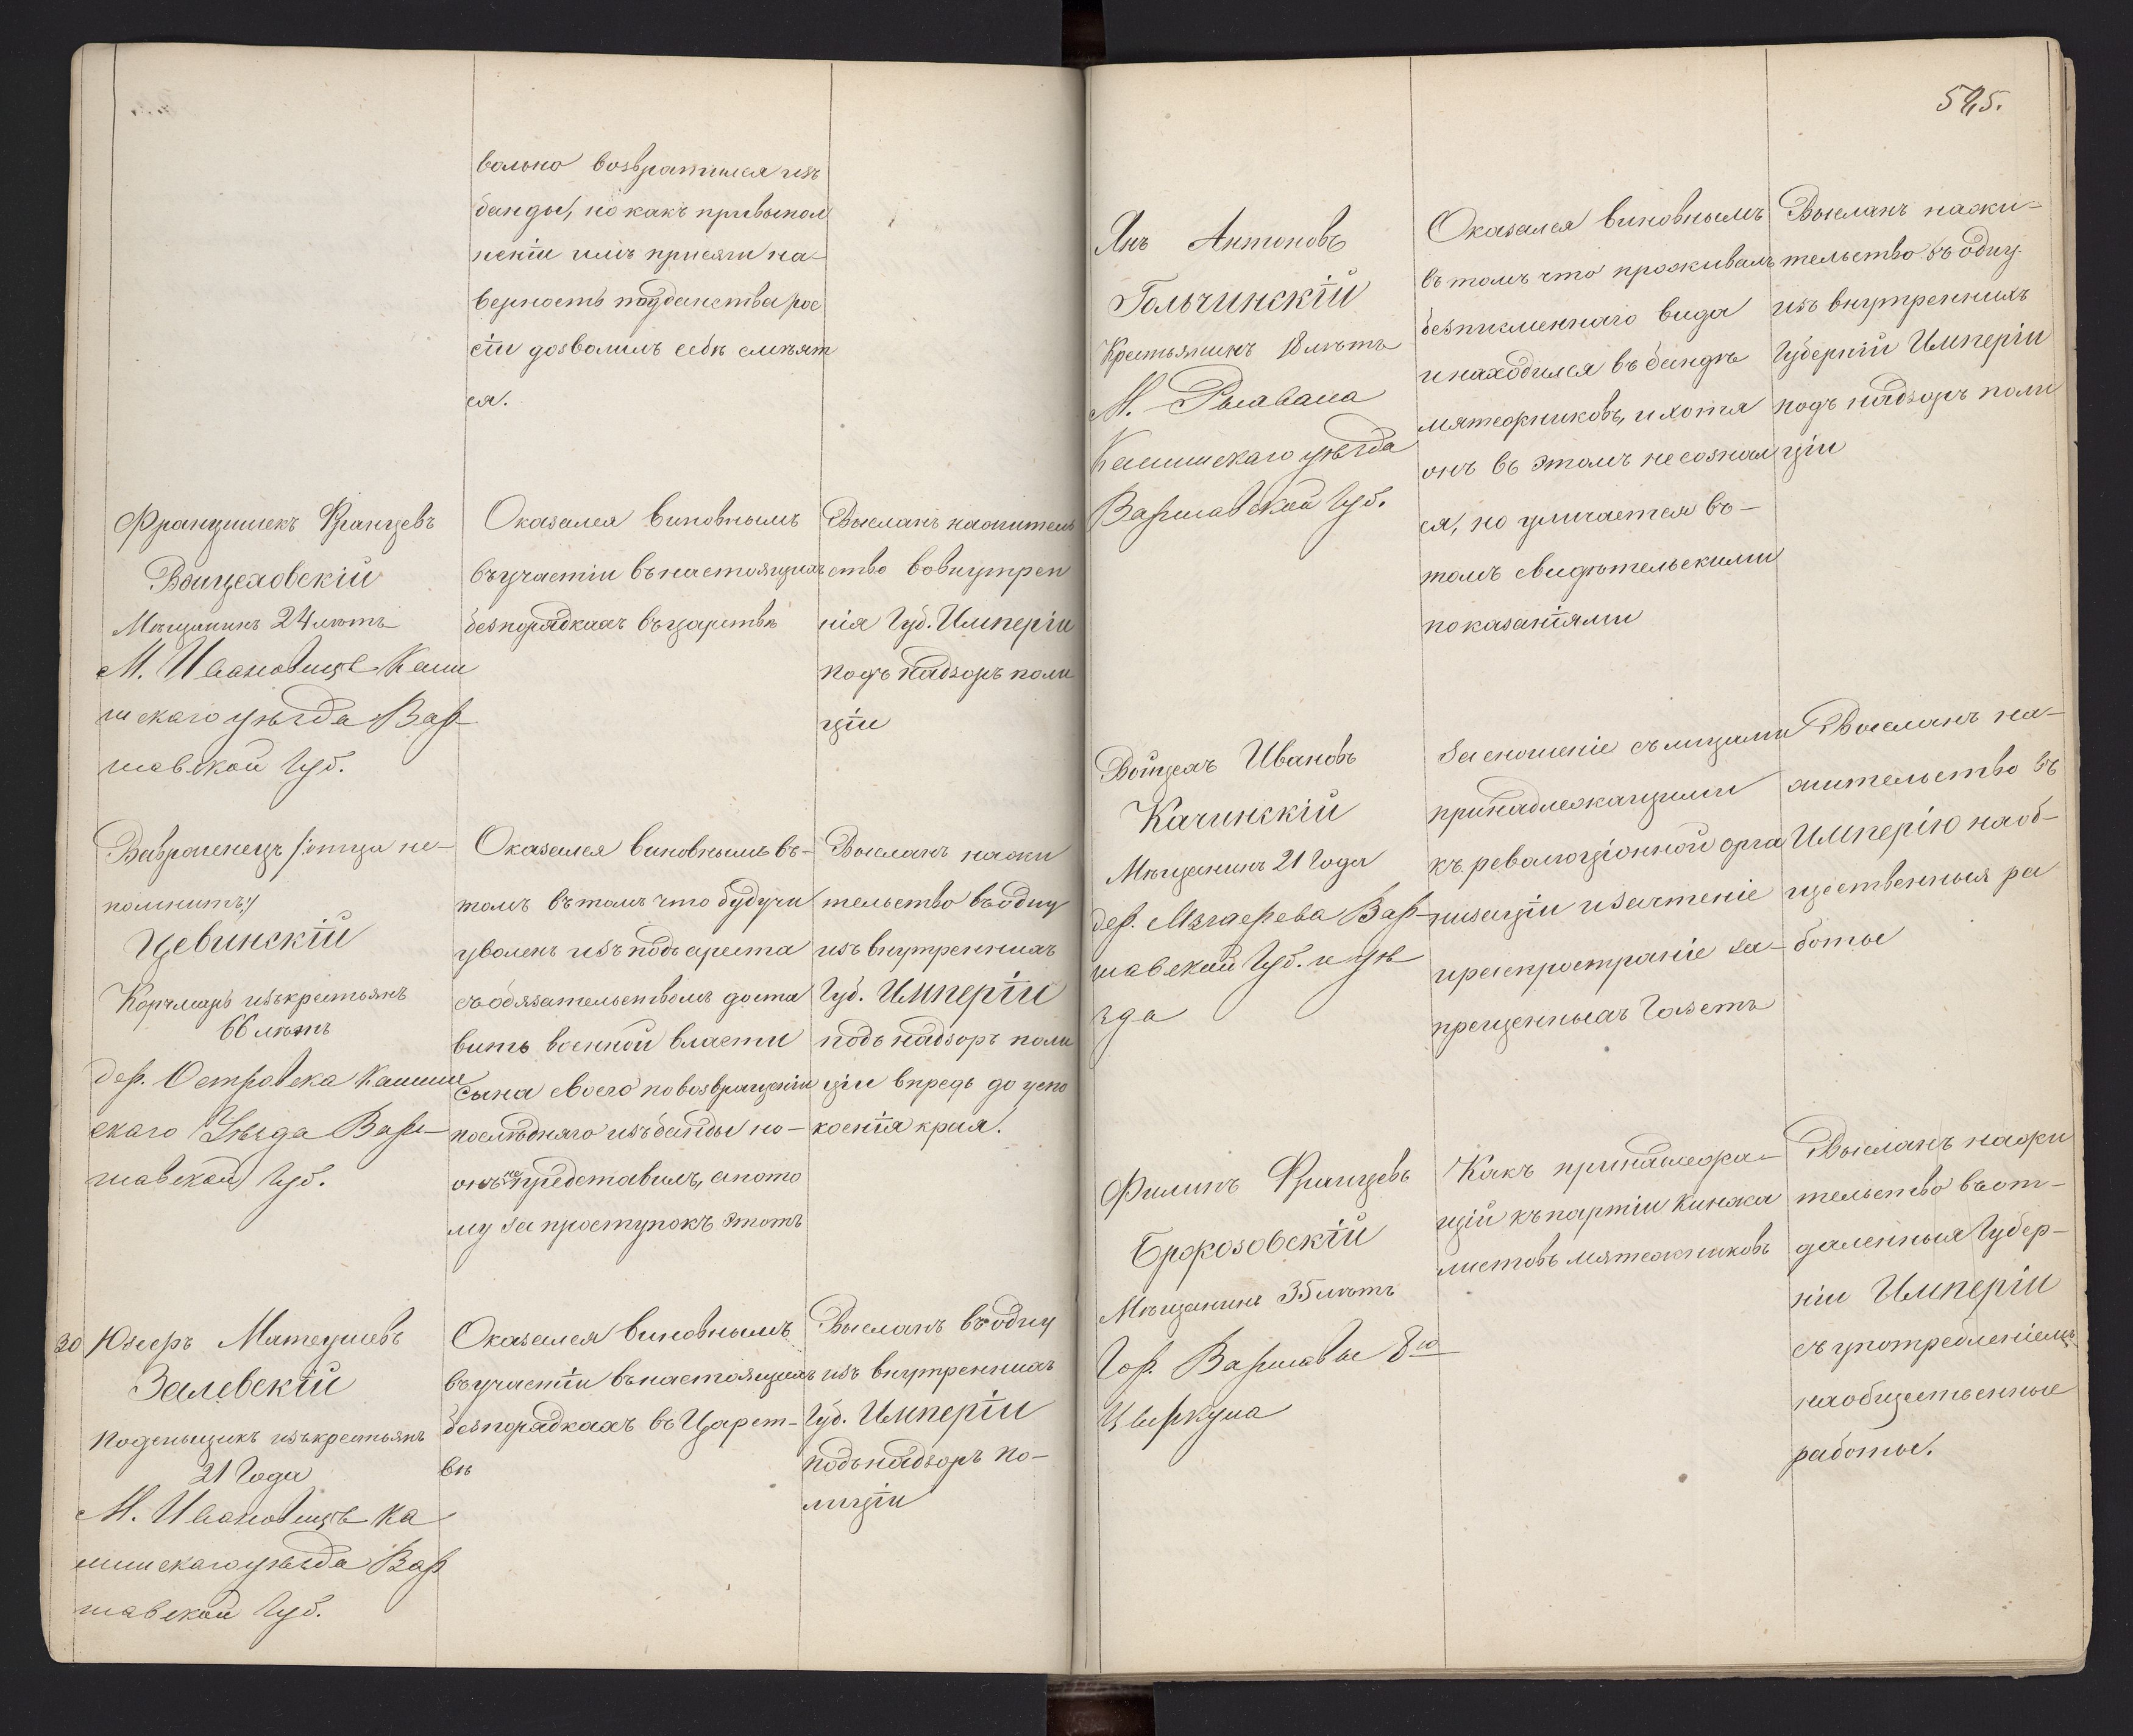 вольно возвратился изъ
банды, но какъ при выпол
неніи имъ присяги на
верность подданства рос
сіи дозволилъ себѣ смѣят
ся.
Францишекъ Францевъ
Войцеховскій
Мѣщанинъ 24 лѣтъ
М. Ивановице Кали
шскаго уѣзда Вар
шавской Губ.
Оказался виновнымъ
въ участіи въ настоящихъ
безпорядкахъ въ царствѣ
Высланъ на житель
ство во внутрен
нія Губ. Имперіи
подъ надзоръ поли
ціи
Вавраенецъ /: отца не-
помнитъ :/
Цевинскій
Корчмарь изъ крестьянъ
66 лѣтъ
дер. Островека Калиш
скаго Уѣзда Вар-
шавской Губ.
Оказался виновнымъ въ-
томъ въ томъ что будучи
уволенъ изъ подъ ареста
съ обязательствомъ доста
вить военной власти
сына своего по возвращеніи
послѣдняго изъ банды но-
онъ не представилъ, а пото
му за проступокъ этотъ
Высланъ на жи
тельство въ одну
изъ внутреннихъ
Губ. Имперіи
подъ надзоръ поли
ціи впредь до успо
коенія края.
30 Юзефъ Матеушевъ
Залевскій
Поденьщикъ изъ крестьянъ
21 Года
М. Ивановице Ка
лишскаго уѣзда Вар
шавской Губ.
Оказался виновнымъ
въ участіи въ настоящихъ
безпорядкахъ въ Царст-
вѣ
Высланъ въ одну
изъ внутреннихъ
Губ. Имперіи
подъ надзоръ по-
лиціи
525.
Янъ Антоновъ
Гольчинскій
Крестьянинъ 18 лѣтъ
М.
Калишскаго уѣзда
Варшавской Губ.
Оказался виновнымъ
въ томъ что проживалъ
безписменнаго вида
и находился въ бандѣ
мятежниковъ, и хотя
онъ въ этомъ не сознал
ся, но уличается въ-
томъ свидѣтельскими
показаніями
Высланъ на жи-
тельство въ одну
изъ внутреннихъ
Губерній Имперіи
подъ надзоръ поли
ціи
Войцехъ Ивановъ
Качинскій
Мѣщанинъ 21 Года
дер. Вар-
шавской Губ. и уѣ
зда
За сношеніе съ лицами
принадлежащими
къ революціонной орга
низаціи и за чтеніе
и распространіе за-
прещенныхъ Газетъ
Высланъ на-
жительство въ
Имперію на об-
щественныя ра
боты
Филипъ Францевъ
Брокозовскій
Мѣщанинъ 35 лѣтъ
Гор. Варшавы 8го
Циркула
Какъ принадлежа-
щій къ партіи Кинжа
листовъ мятежниковъ
Высланъ на жи
тельство въ от-
даленныя Губер-
ніи Имперіи
съ употребленіемъ
на общественные
работы.